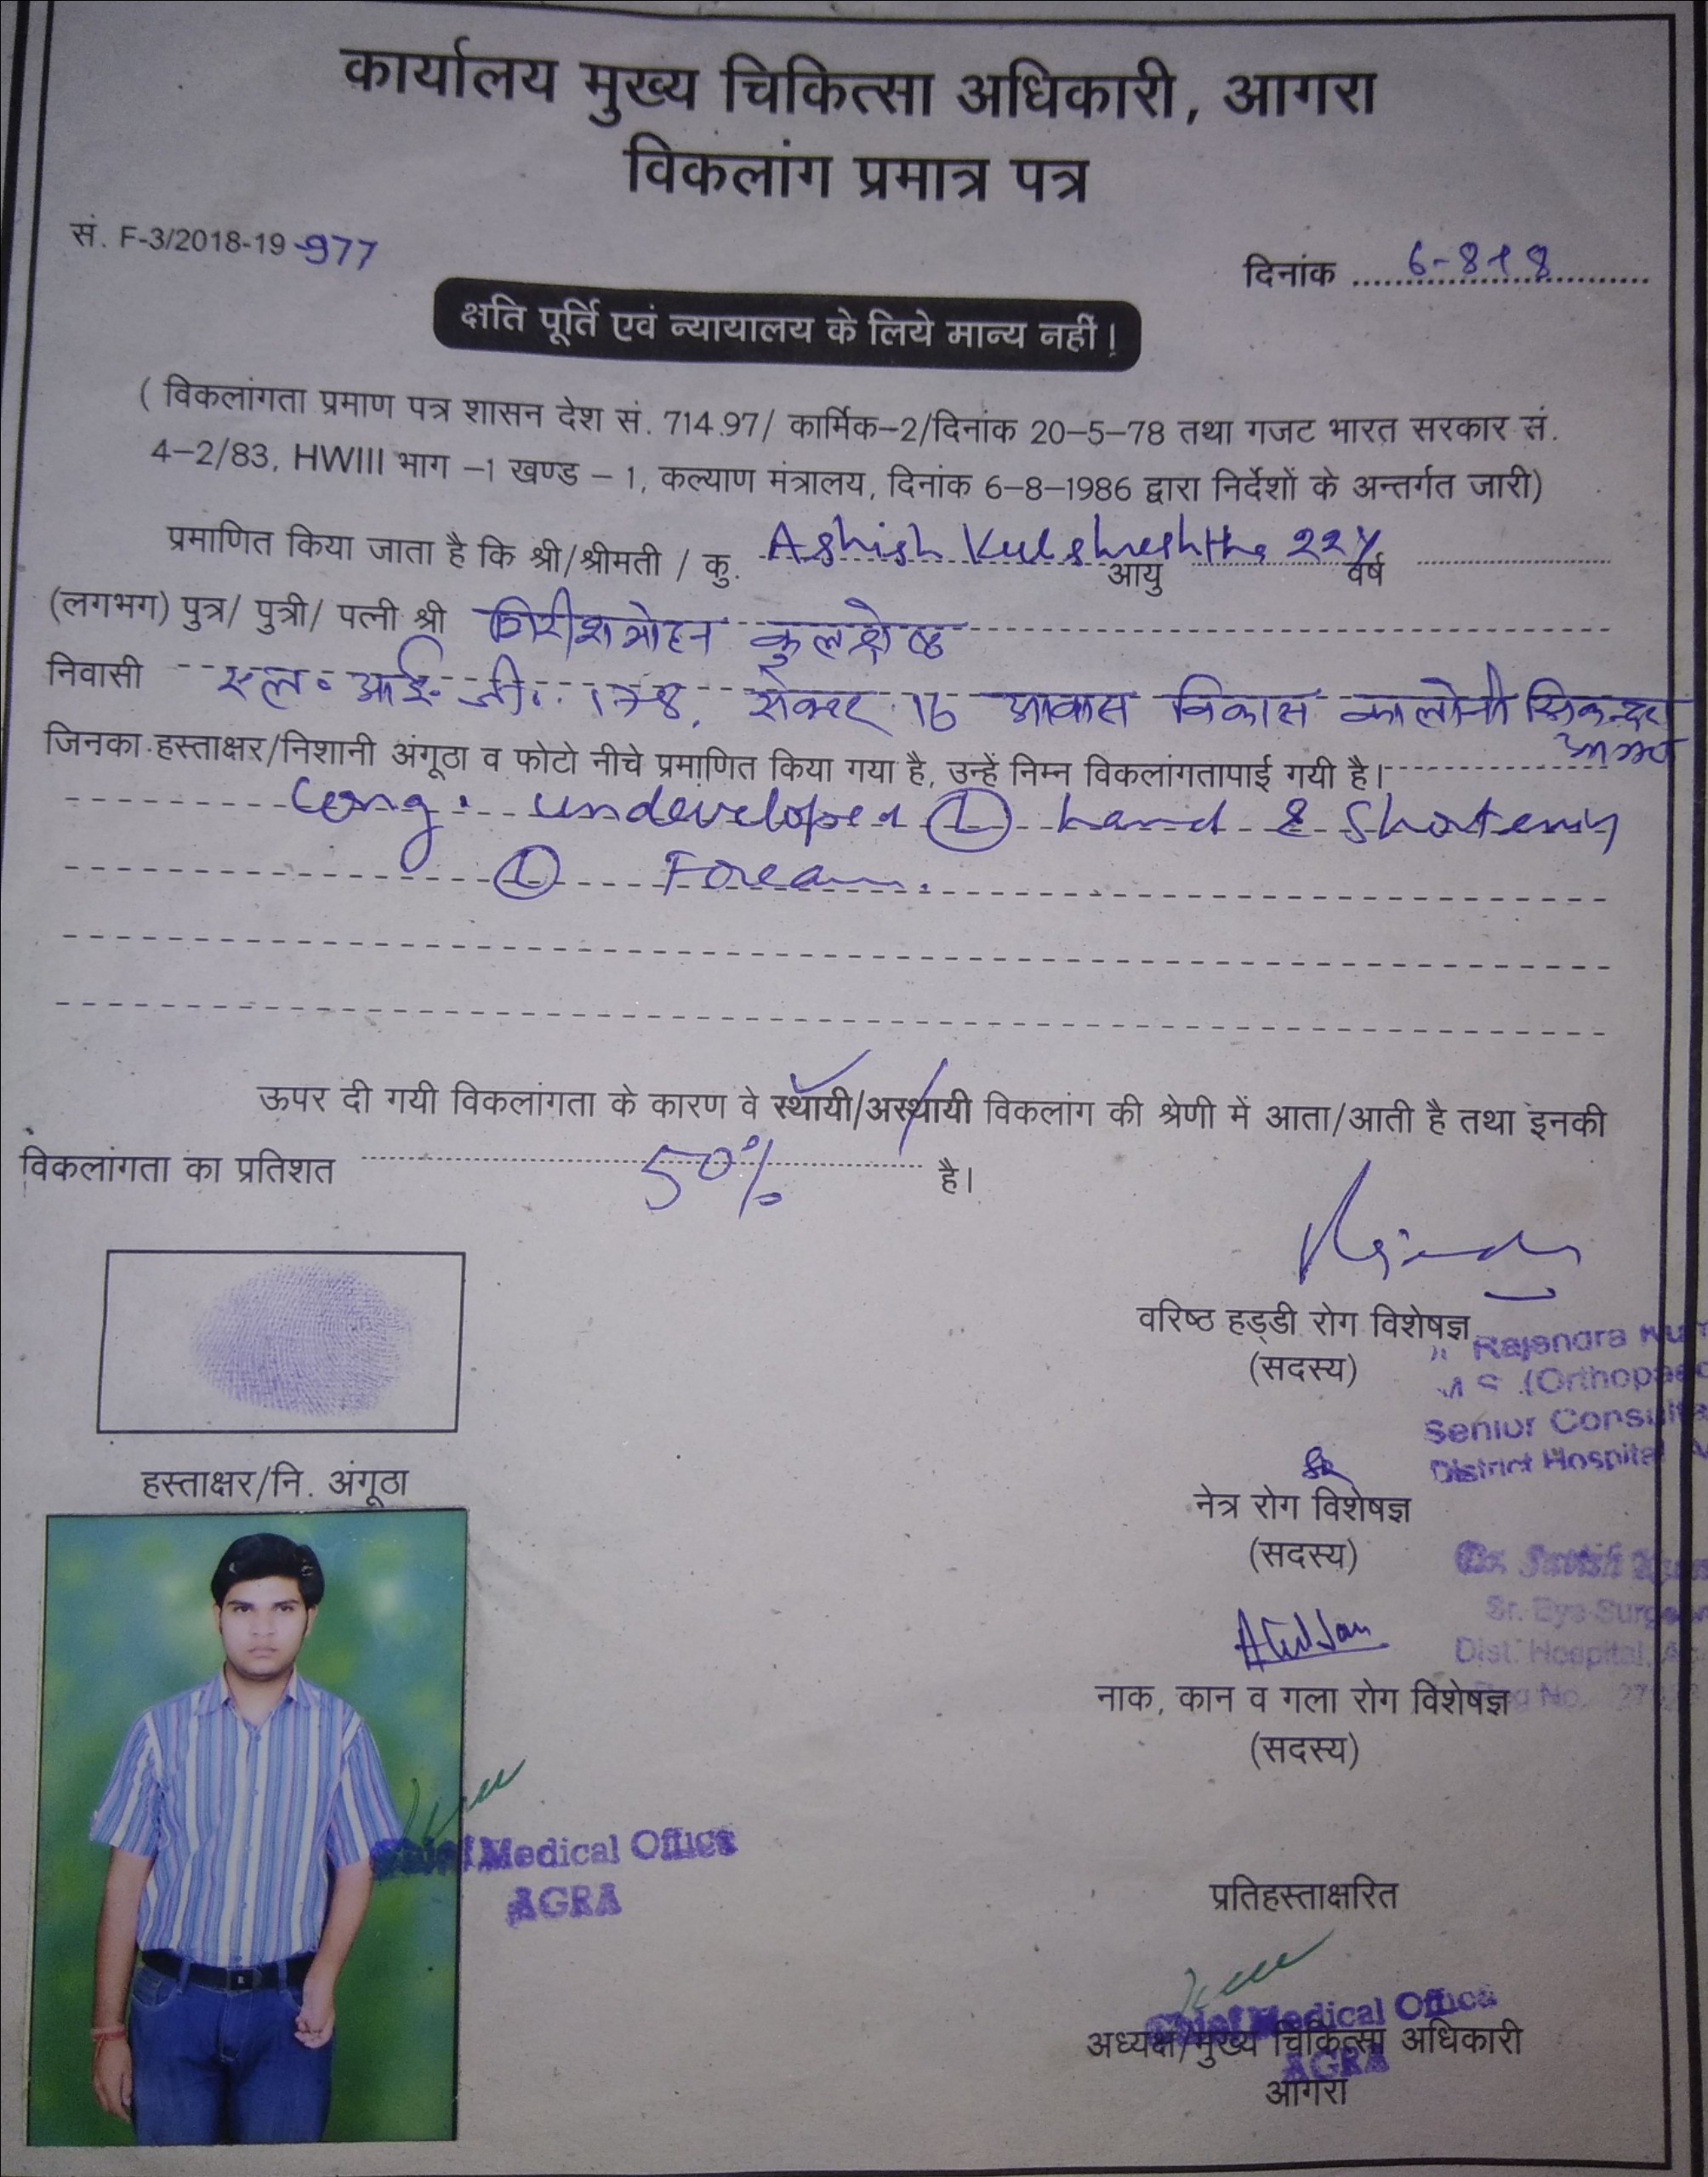 कार्यालय मुख्य चिकित्सा अधिकारी, आगरा
विकलांग प्रमात्र पत्र
सं. F-3/2018-19 -977
दिनांक 6-8-18
क्षति पूर्ति एवं न्यायालय के लिये मान्य नहीं!
( विकलांगता प्रमाण पत्र शासन देश सं. 714.97/ कार्मिक-2/दिनांक 20-5-78 तथा गजट भारत सरकार सं.
4-2/83, HWIII भाग -1 खण्ड - 1, कल्याण मंत्रालय, दिनांक 6-8-1986 द्वारा निर्देशों के अन्तर्गत जारी)
प्रमाणित किया जाता है कि श्री/श्रीमती / कु. Ashish Kulshreshtha आयु 22y वर्ष
(लगभग) पुत्र/ पुत्री/ पत्नी श्री गिरीश मोहन कुलश्रेष्ठ
निवासी एल॰ आई॰ जी॰ 178, सेक्टर 16 आवास विकास कालोनी सिकन्दरा
आगरा
जिनका हस्ताक्षर/निशानी अंगूठा व फोटो नीचे प्रमाणित किया गया है, उन्हें निम्न विकलांगतापाई गयी है।
Cong. undeveloped (L) hand & Shortening
(L) Forearm.
ऊपर दी गयी विकलांगता के कारण वे स्थायी/अस्थायी विकलांग की श्रेणी में आता/आती है तथा इनकी
विकलांगता का प्रतिशत 50% है।
वरिष्ठ हड्डी रोग विशेषज्ञ
(सदस्य)
Rajendra
(Orthopaed
Senior Consulta
District Hospital
हस्ताक्षर/नि. अंगूठा
नेत्र रोग विशेषज्ञ
(सदस्य)
Dr. Satish
Sr. Eye Surgeon
Dist. Hospital,
नाक, कान व गला रोग विशेषज्ञ
(सदस्य)
Chief Medical Office
AGRA
प्रतिहस्ताक्षरित
Chief Medical Office
AGRA
अध्यक्ष/मुख्य चिकित्सा अधिकारी
आगरा